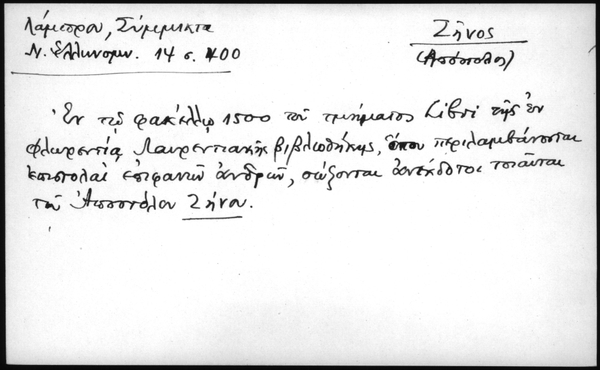 Λάμπρου, Σύμμικτα
Ν. Ἑλληνομν. 14 σ. 400
Ζῆνος
(Ἀπόστολος)
Ἐν τῷ φακέλλῳ 1500 τοῦ τμήματος Libri τῆς ἐν
Φλωρεντίᾳ Λαυρεντιακῆς βιβλιοθήκης, ὅπου περιλαμβάνονται
ἐπιστολαὶ ἐπιφανῶν ἀνδρῶν, σώζονται ἀνέκδοτοι τοιαῦται
τοῦ Ἀποστόλου Ζήνου.